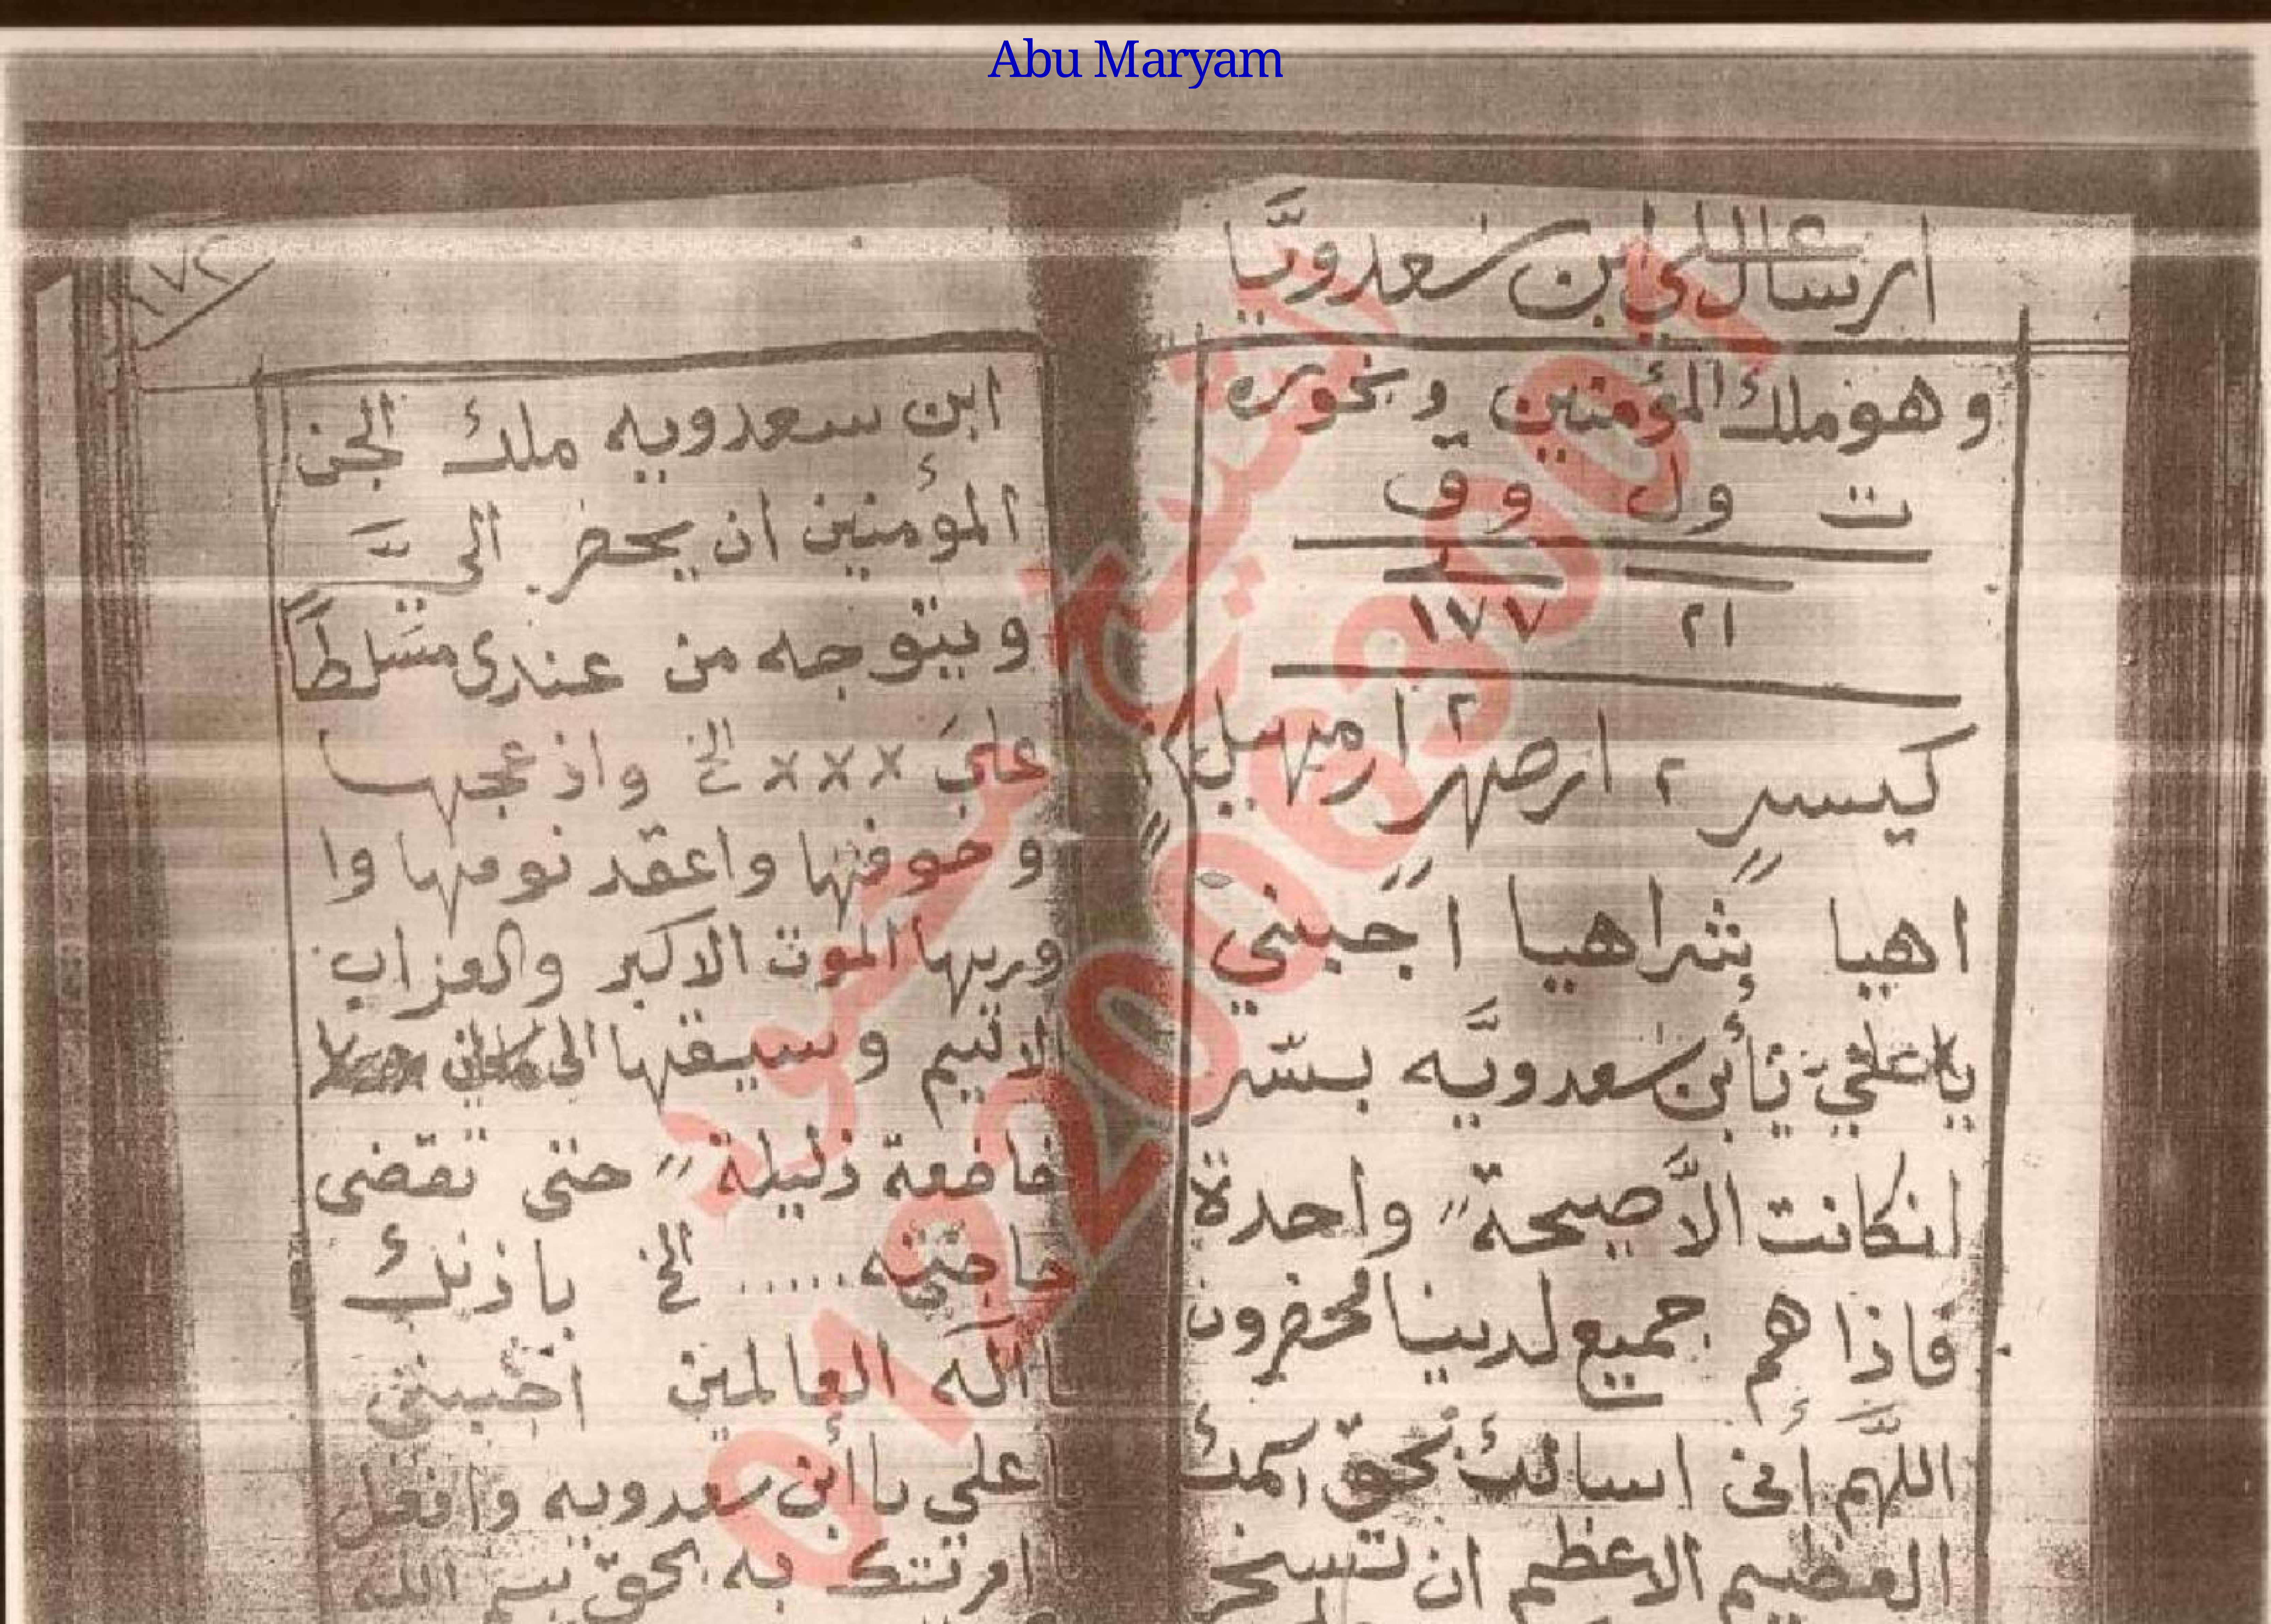 Abu Maryam
ارسال علي ابن سعدويَّا
وهو ملك المؤمنين وبخوره
ت ول وق
٢١ ١٧٧
كيسر ٢ ارصهر ٢ ارمهيل ٢
اهيا شراهيا اجيبني
يا علي يأبن سعدويَّه بسّر
انكانت الاَّ صيحة واحدة
فاذا هم جميع لدينا محضرون
اللهم أني اسالك بحق اسمك
العظيم الاعظم ان تسخر
٢٧٢
ابن سعدويه ملك الجن
المؤمنين ان يحضر الىَّ
ويتوجه من عندى مسَلطاً
على xxx الخ واذعجها
وخوفها واعقد نومها وا
وريها الموت الاكبر والعزاب
الاليم وسيقها الى
خاضعة ذليلة حتى تقضى
حاجته ..... الخ باذنك
يا اله العالمين اجيبنى
يا علي يا أبن سعدويه وافعل
ما امرتك به بحق بسم الله
الشيخ محمود
01220063001